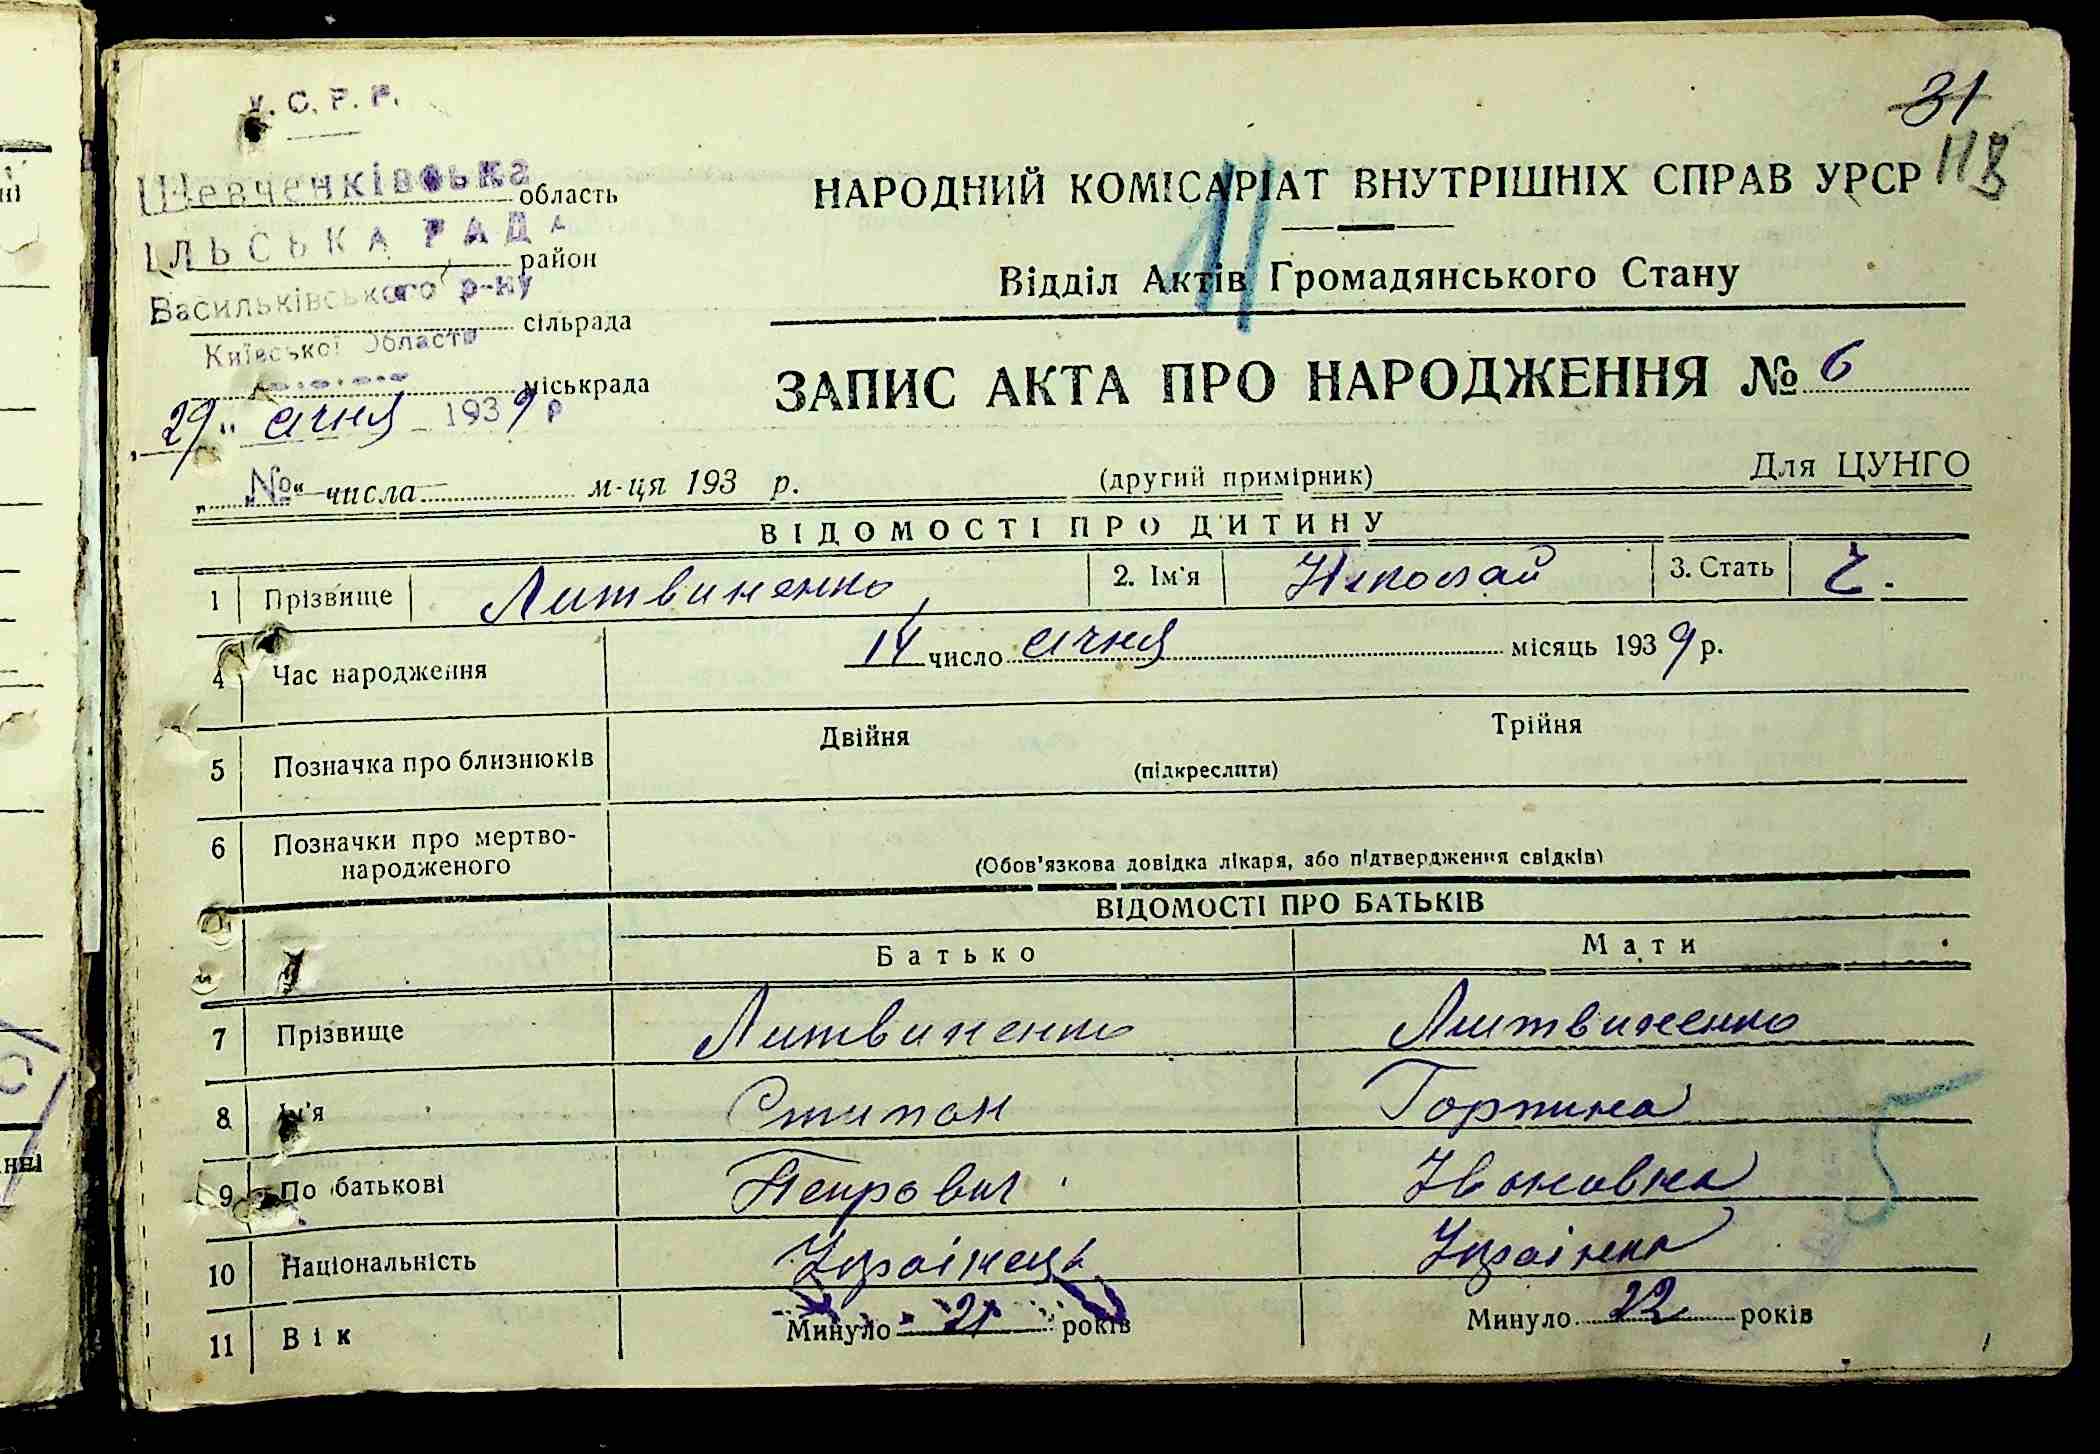 31
113
У. С. Р. Р.
Шевченківська область
ІЛЬСЬКА РАДА район
Васильківського р-ну сільрада
Київської Области міськрада
„29“ січня 1939 р
НАРОДНИЙ КОМІСАРІАТ ВНУТРІШНІХ СПРАВ УРСР
Відділ Актів Громадянського Стану
ЗАПИС АКТА ПРО НАРОДЖЕННЯ № 6
„ №“ числа м-ця 193 р. (другий примірник) Для ЦУНГО
ВІДОМОСТІ ПРО ДИТИНУ
1 Прізвище Литвиненко 2. Ім'я Николай 3. Стать Ч.
4 Час народження 14 число січня місяць 1939 р.
5 Позначка про близнюків Двійня Трійня
(підкреслити)
6 Позначки про мертво-
народженого (Обов'язкова довідка лікаря, або підтвердження свідків)
ВІДОМОСТІ ПРО БАТЬКІВ
Батько Мати
7 Прізвище Литвиненко Литвиненко
8 Ім'я Стипан Горпина
9 По батькові Петрович Івановна
10 Національність Українець Українка
11 Вік Минуло 21 років Минуло 22 років